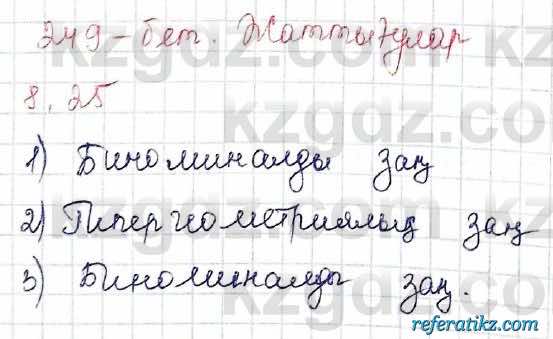 249-бет. Жаттығулар
8.25
1) Биноминалды заң
2) Гипергеометриялық заң
3) Биноминалды заң.
kzgdz.com
referatikz.com